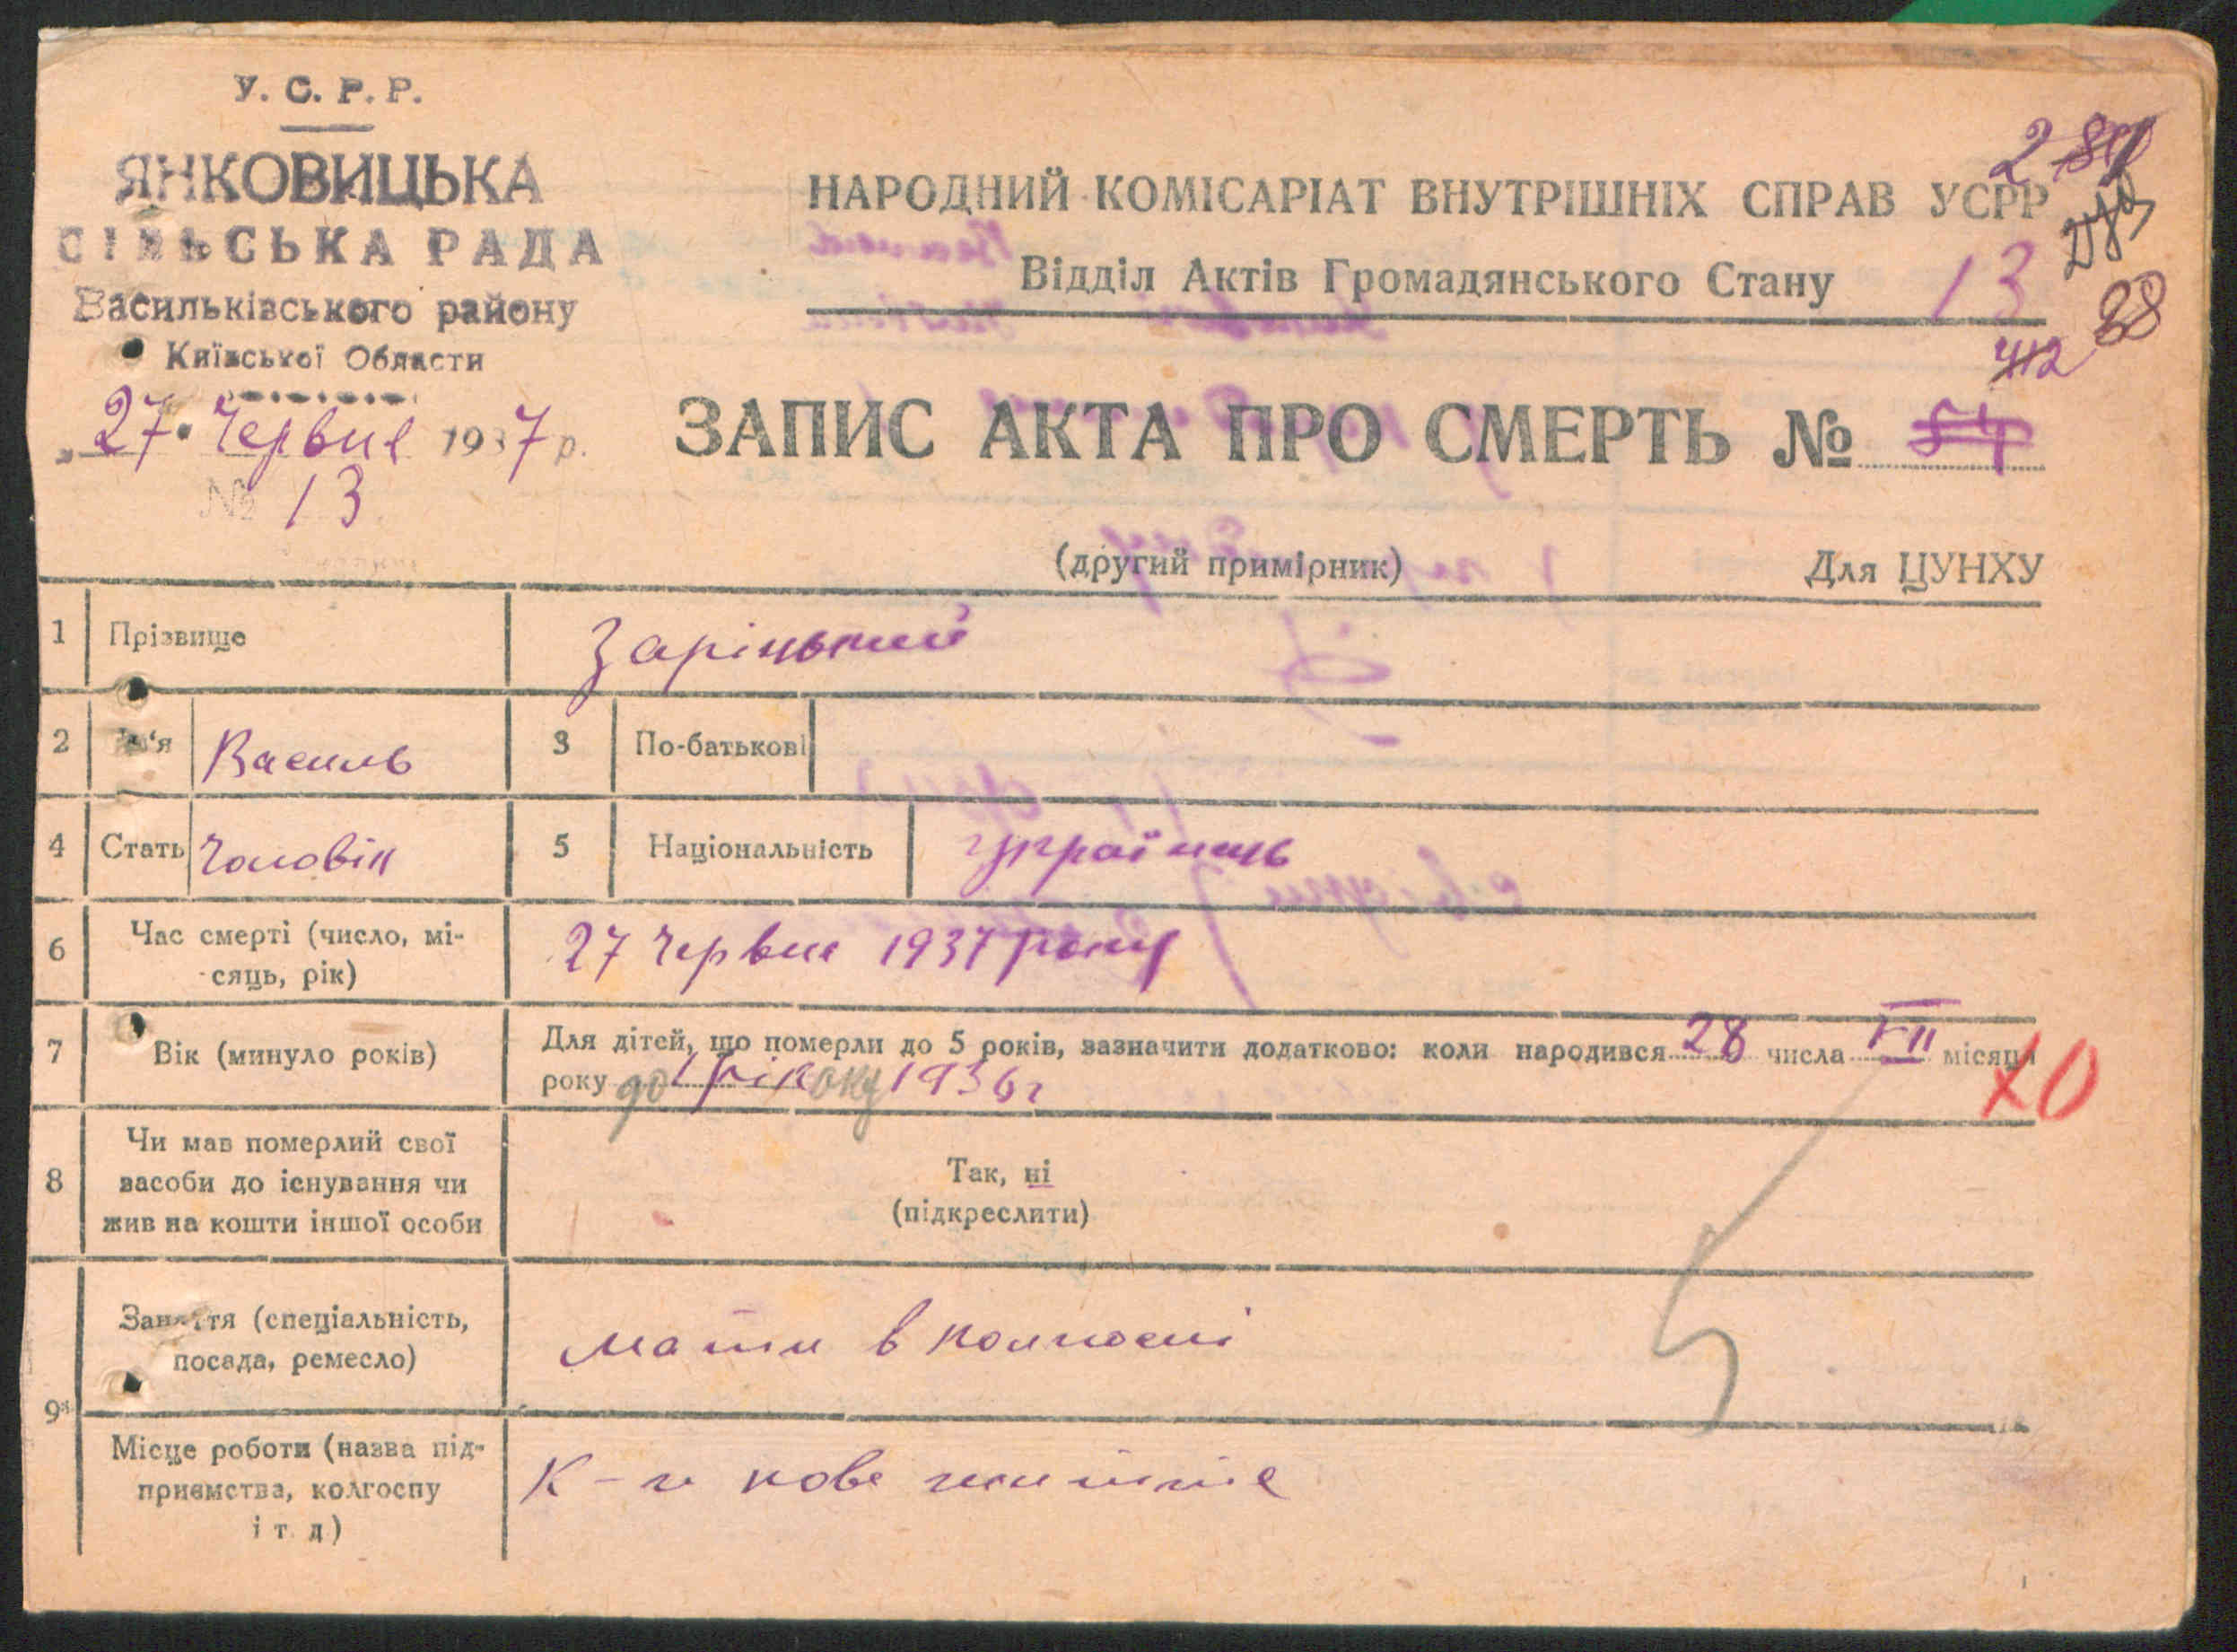 У. С. Р. Р.
ЯНКОВИЦЬКА
СІЛЬСЬКА РАДА
Васильківського району
Київської Области
„27" Червня 1937 р.
№ 13
НАРОДНИЙ КОМІСАРІАТ ВНУТРІШНІХ СПРАВ УСРР
Відділ Актів Громадянського Стану 13
38
412
ЗАПИС АКТА ПРО СМЕРТЬ № 54
(другий примірник) Для ЦУНХУ
1 Прізвище Заріцький
2 Ім'я Василь 3 По-батькові
4 Стать Чоловік 5 Національність українець
6 Час смерті (число, мі-
сяць, рік) 27 Червня 1937 року
7 Вік (минуло років) Для дітей, що померли до 5 років, зазначити додатково: коли народився 28 числа VII місяця
року до 1 року 1936 г
10
8 Чи мав померлий свої
засоби до існування чи
жив на кошти іншої особи
Так, ні
(підкреслити)
9а Заняття (спеціальність,
посада, ремесло) мати в колгоспі
Місце роботи (назва під-
приємства, колгоспу
і т. д) К-п нове життя